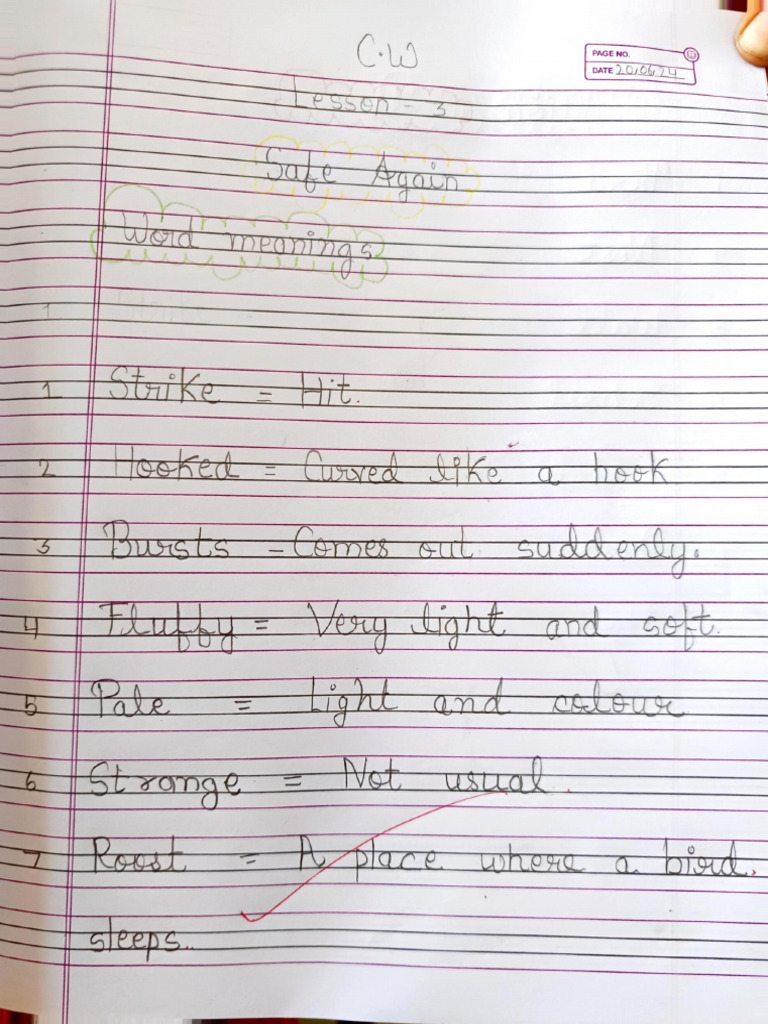 C.W
PAGE NO.
DATE 20.06.24
Lesson - 3
Safe Again
Word meanings
1.
1 Strike = Hit.
2 Hooked = Curved like a hook
3 Bursts = Comes out suddenly.
4 Fluffy = Very light and soft.
5 Pale = Light and colour
6 Strange = Not usual.
7 Roost = A place where a bird.
sleeps..